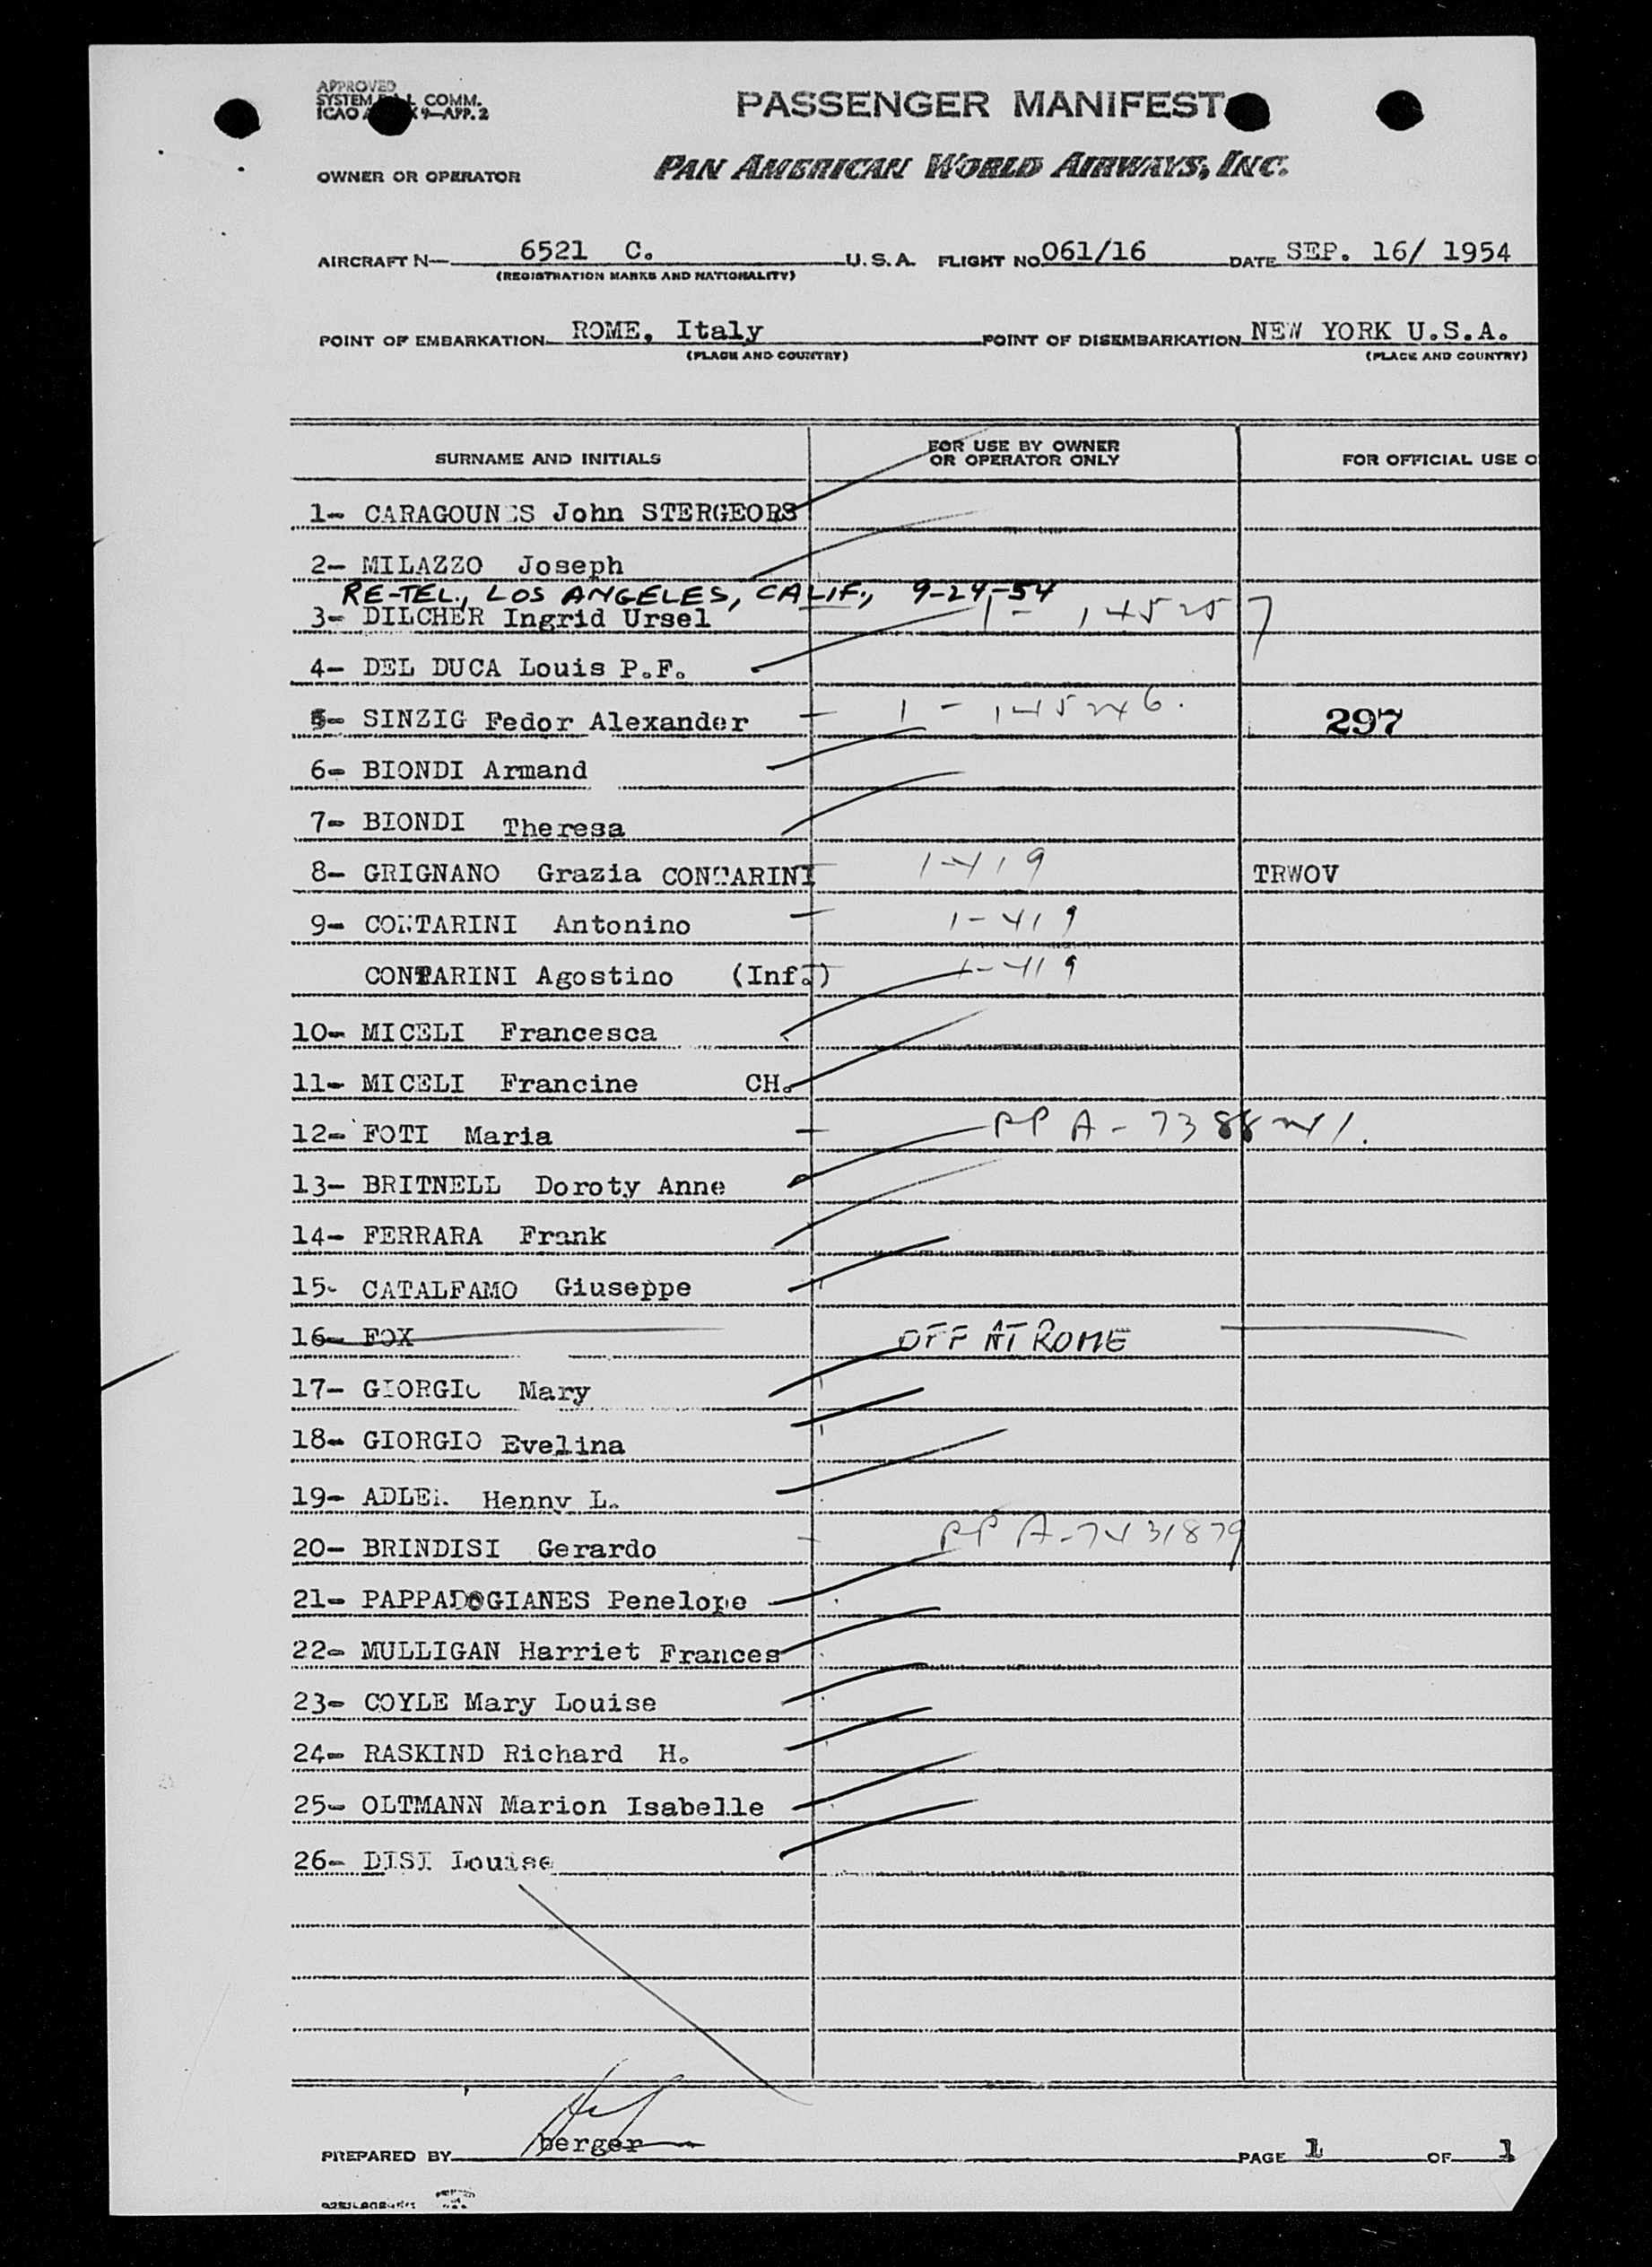 APPROVED
SYSTEM COMM.
ICAO 9—APP. 2
PASSENGER MANIFEST
OWNER OR OPERATOR
PAN AMERICAN WORLD AIRWAYS, INC.
AIRCRAFT N— 6521 C. U.S.A. FLIGHT NO. 061/16 DATE SEP. 16/ 1954
(REGISTRATION MARKS AND NATIONALITY)
POINT OF EMBARKATION ROME, Italy POINT OF DISEMBARKATION NEW YORK U.S.A.
(PLACE AND COUNTRY) (PLACE AND COUNTRY)
SURNAME AND INITIALS FOR USE BY OWNER OR OPERATOR ONLY FOR OFFICIAL USE O
1- CARAGOUNES John STERGEORS
2- MILAZZO Joseph
RE-TEL., LOS ANGELES, CALIF., 9-24-54
3- DILCHER Ingrid Ursel 1- 145257
4- DEL DUCA Louis P.F.
5- SINZIG Fedor Alexander 1 - 145246. 297
6- BIONDI Armand
7- BIONDI Theresa
8- GRIGNANO Grazia CONTARINI 1-419 TRWOV
9- CONTARINI Antonino 1-419
CONTARINI Agostino (Inf.) 1-419
10- MICELI Francesca
11- MICELI Francine CH.
12- FOTI Maria PP A-7388241.
13- BRITNELL Doroty Anne
14- FERRARA Frank
15- CATALFAMO Giuseppe
16- FOX OFF AT ROME
17- GIORGIO Mary
18- GIORGIO Evelina
19- ADLER Henny L.
20- BRINDISI Gerardo PP A-7431879
21- PAPPADOGIANES Penelope
22- MULLIGAN Harriet Frances
23- COYLE Mary Louise
24- RASKIND Richard H.
25- OLTMANN Marion Isabelle
26- DISI Louise
PREPARED BY berger PAGE 1 OF 1